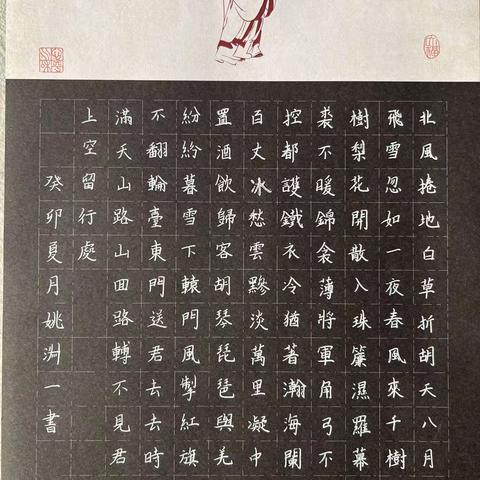 北風捲地白草折胡天八月
飛雪忽如一夜春風來千樹
樹梨花開散入珠簾濕羅幕
裘不暖錦衾薄將軍角弓不
控都護鐵衣冷猶著瀚海闌
百丈冰愁雲黲淡萬里凝中
置酒飲歸客胡琴琵琶與羌
紛紛暮雪下轅門風掣紅旗
不翻輪臺東門送君去去時
滿天山路山回路轉不見君
上空留行處
癸卯夏月姚淵一書